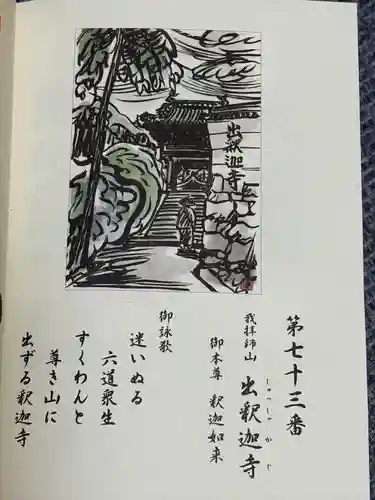 出釈迦寺
第七十三番
我拝師山 出釈迦寺
しゅっしゃかじ
御本尊 釈迦如来
御詠歌
迷いぬる
六道衆生
すくわんと
尊き山に
出ずる釈迦寺